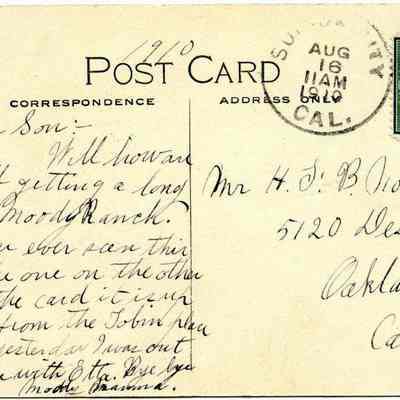 1910
POST CARD
CORRESPONDENCE
ADDRESS ONLY
CITY
AUG
16
11AM
1910
CAL.
Son:-
Well how are
getting a long
Moody Ranch.
ever seen this
one on the other
card it is up
from the Tobin place
yesterday I was out
with Etta. Bye bye
Mamma.
Mr H. B.
5120
Oakla
Ca